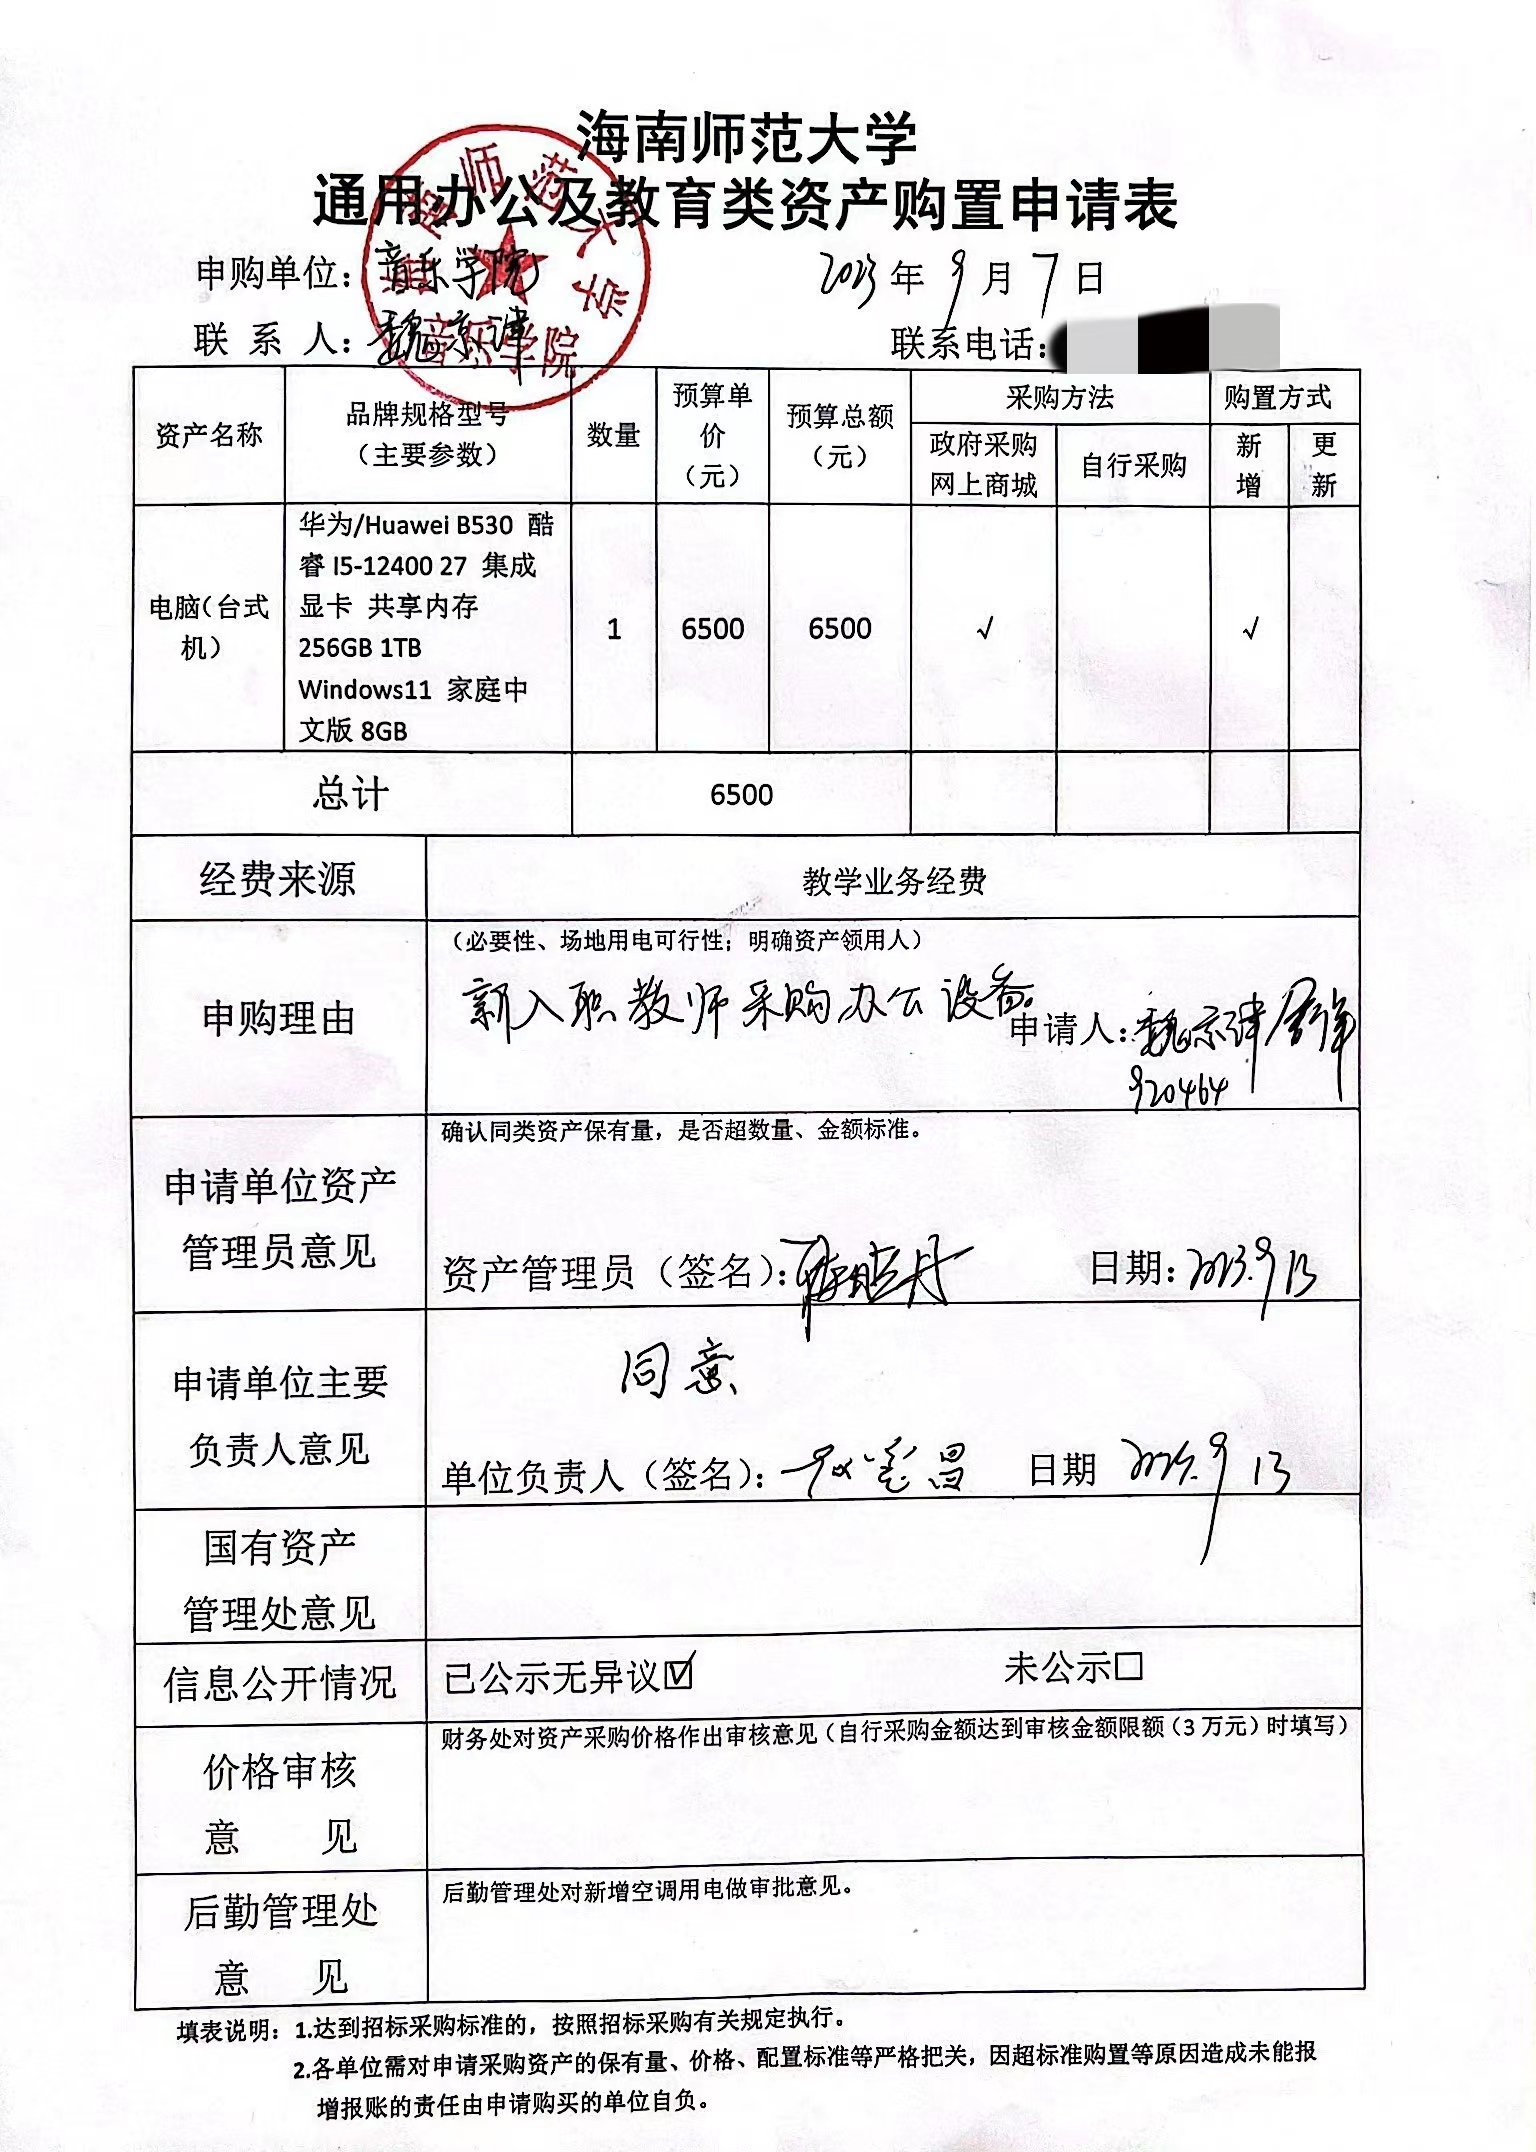 海南师范大学
通用办公及教育类资产购置申请表
海南师范大学
音乐学院
申购单位：音乐学院
2023年9月7日
联 系 人：魏京津
联系电话：
资产名称
品牌规格型号
（主要参数）
数量
预算单
价
（元）
预算总额
（元）
采购方法
购置方式
政府采购
网上商城
自行采购
新
增
更
新
电脑（台式
机）
华为/Huawei B530 酷
睿 I5-12400 27 集成
显卡 共享内存
256GB 1TB
Windows11 家庭中
文版 8GB
1
6500
6500
√
√
总计
6500
经费来源
教学业务经费
申购理由
（必要性、场地用电可行性；明确资产领用人）
新入职教师采购办公设备。
申请人：魏京津
920464
申请单位资产
管理员意见
确认同类资产保有量，是否超数量、金额标准。
资产管理员（签名）：
日期：2023.9.13
申请单位主要
负责人意见
同意
单位负责人（签名）：
日期 9 13
国有资产
管理处意见
信息公开情况
已公示无异议☑
未公示□
价格审核
意 见
财务处对资产采购价格作出审核意见（自行采购金额达到审核金额限额（3 万元）时填写）
后勤管理处
意 见
后勤管理处对新增空调用电做审批意见。
填表说明：1.达到招标采购标准的，按照招标采购有关规定执行。
2.各单位需对申请采购资产的保有量、价格、配置标准等严格把关，因超标准购置等原因造成未能报
增报账的责任由申请购买的单位自负。